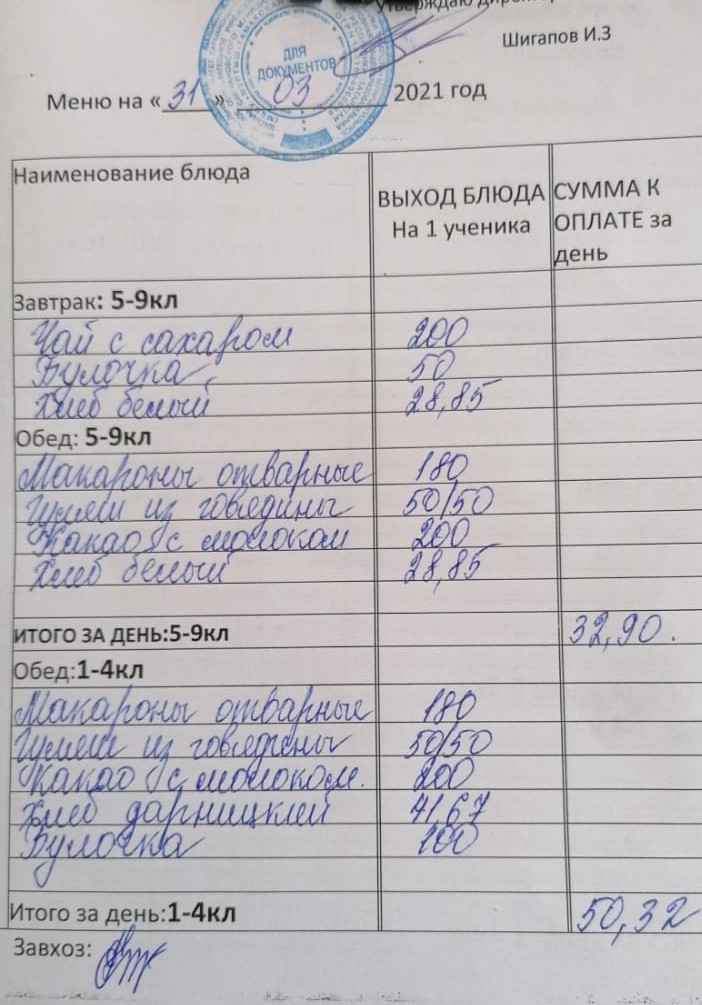 Утверждаю
Шигапов И.З
ДЛЯ
ДОКУМЕНТОВ
Меню на «31» 03 2021 год
Наименование блюда
ВЫХОД БЛЮДА
На 1 ученика
СУММА К
ОПЛАТЕ за
день
Завтрак: 5-9кл
Чай с сахаром 200
Булочка 50
Хлеб белый 28,85
Обед: 5-9кл
Макароны отварные 180
Гуляш из говядины 50/50
Какао с молоком 200
Хлеб белый 28,85
ИТОГО ЗА ДЕНЬ:5-9кл 32,90.
Обед:1-4кл
Макароны отварные 180
Гуляш из говядины 50/50
Какао с молоком. 200
Хлеб дарницкий 41,67
Булочка 100
Итого за день:1-4кл 50,32
Завхоз: